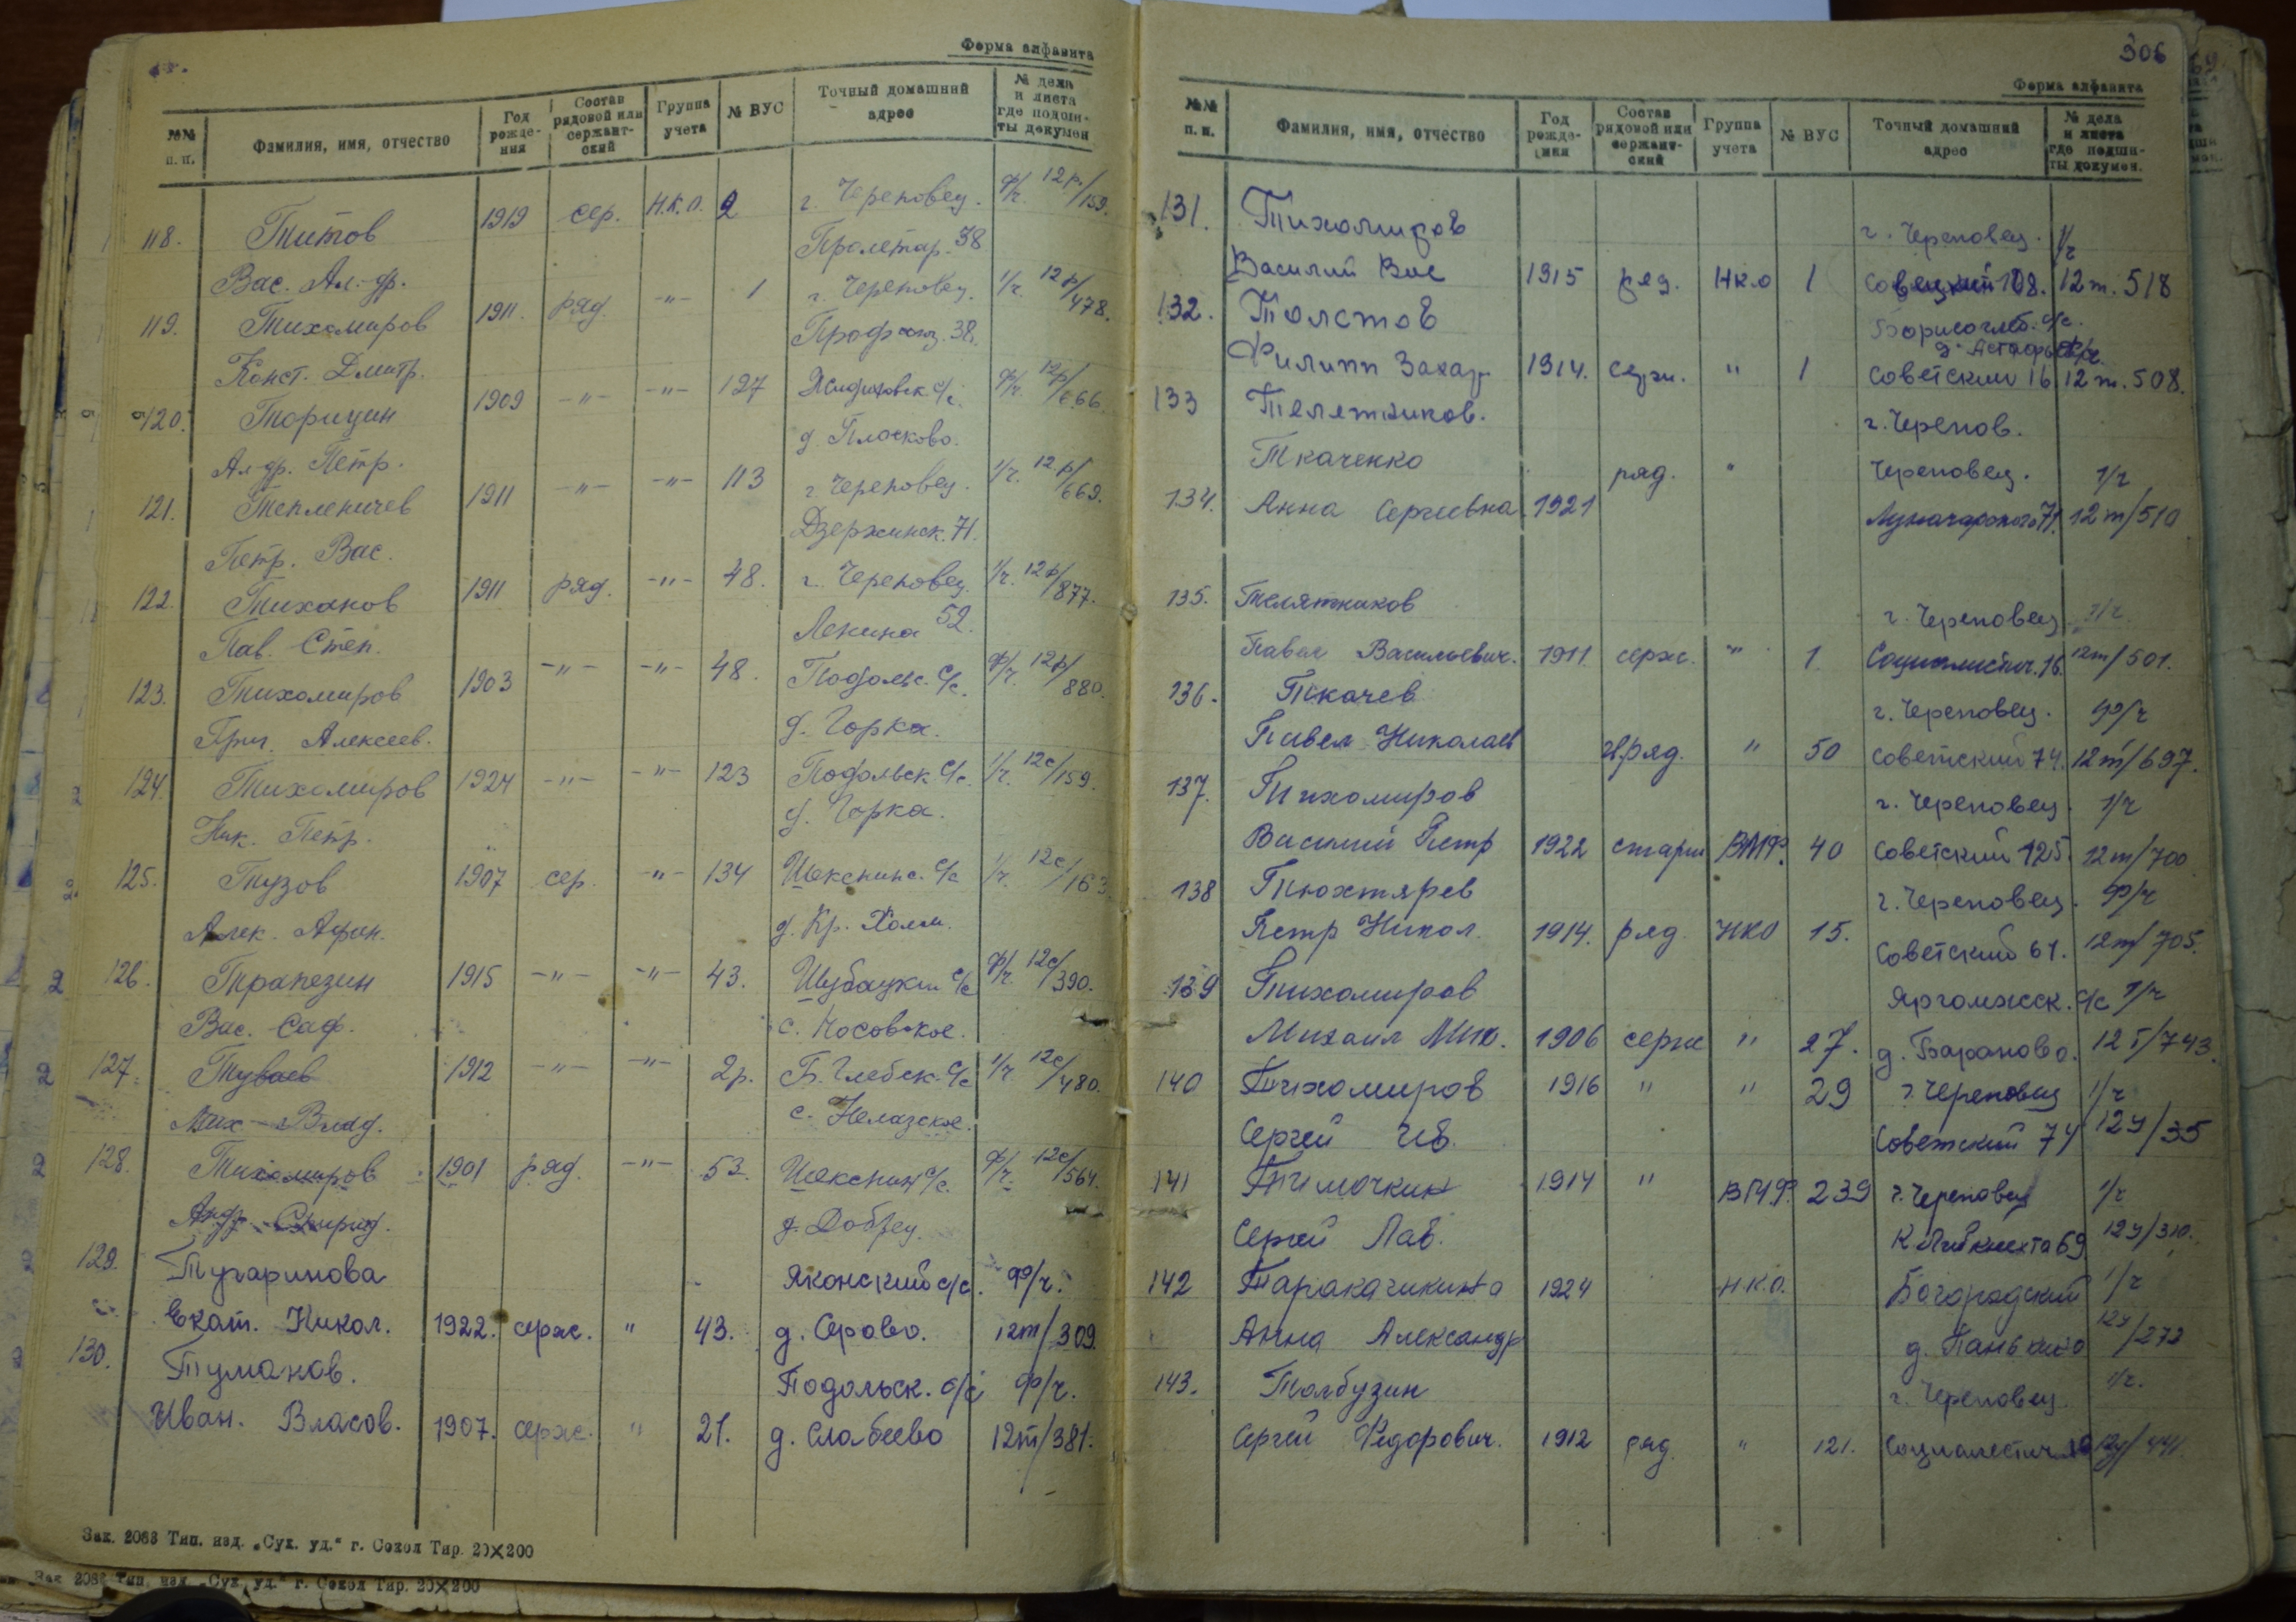 Форма алфавита
№№ п.п. Фамилия, имя, отчество Год рожде- ния Состав рядовой или сержант- ский Группа учета № ВУС Точный домашний адрес № дела и листа где подши- ты докумен
118. Титов 1919 сер. Н.К.О. 2 г. Череповец. ф/ч. 12р/159.
Вас. Ал-др. Пролетар. 38
119. Тихомиров 1911. ряд. -"- 1 г. Череповец. 1/ч. 12р/478.
Конст. Дмитр. 38.
120. Торицын 1909 -"- -"- 127 с/с. ф/ч. 12р/666.
Ал-др. Петр. д. Плосково.
121. Тепленичев 1911 -"- -"- 113 г. Череповец. 1/ч. 12р/669.
Петр. Вас. Дзержинск. 71.
122. Тиханов 1911 ряд. -"- 48. г. Череповец. 1/ч. 12р/877.
Пав. Степ. Ленина 52.
123. Тихомиров 1903 -"- -"- 48. Подольс. с/с. ф/ч. 12р/880.
Григ. Алексеев. д. Горка.
124. Тихомиров 1924 -"- -"- 123 Подольск с/с. 1/ч. 12с/159.
Ник. Петр. д. Горка.
125. Тузов 1907 сер. -"- 134 Шекснинс. с/с 1/ч. 12с/163
Алек. Афан. д. Кр. Холм.
126. Трапезин 1915 -"- -"- 43. Шубацкий с/с ф/ч. 12с/390.
Вас. Саф. с. Носовское.
127. Туваев 1912 -"- -"- 2р. Б. Глебск. с/с 1/ч. 12с/480.
Мих. Влад. с. Нелазское.
128. Тихомиров 1901 ряд. -"- 53. Шекснин с/с. ф/ч. 12с/564.
Андр. Спирид. д. Добрец.
129. Тугаринова Яконский с/с. ф/ч.
Екат. Никол. 1922. серж. " 43. д. Серово. 12т/309.
130. Тумаков. Подольск. с/с ф/ч.
Иван. Власов. 1907. серж. " 21. д. Слабеево 12т/381.
Зак. 2083 Тип. изд. „Сух. уд.“ г. Сокол Тир. 20×200
Зак 2083 Тип. изд. „Сух. уд.“ г. Сокол Тир. 20×200
306
Форма алфавита
№№ п.п. Фамилия, имя, отчество Год рожде- ния Состав рядовой или сержант- ский Группа учета № ВУС Точный домашний адрес № дела и листа где подши- ты докумен.
131. Тихомиров г. Череповец. 1/ч
Василий Вас 1915 ряд. НКО 1 Советский 108. 12т. 518
132. Толстов Борисоглеб. с/с.
Филипп Захар 1914. серж. " 1 Советский 16 12т. 508.
133 Телятников. г. Черепов.
Ткаченко ряд. " Череповец. 1/ч
134. Анна Сергеевна 1921 Луначарского 71. 12т/510
135. Телятников г. Череповец 1/ч.
Павел Васильевич. 1911. серж. " 1. Социалистич. 16. 12т/501.
136. Ткачев г. Череповец. ф/ч
Павел Николаев ряд. " 50 Советский 74. 12т/697.
137. Тихомиров г. Череповец. 1/ч
Василий Петр 1922 старш ВМФ. 40 Советский 125. 12т/700
138 Тюхтярев г. Череповец. ф/ч
Петр Никол. 1914. ряд. НКО 15. Советский 61. 12т/705.
139 Тихомиров Яргомжск. с/с 1/ч
Михаил Мих. 1906 серж " 27. д. Бараново. 12т/743.
140 Тихомиров 1916 " " 29 г. Череповец 1/ч
Сергей Ив. Советский 74 12у/35
141 Тимочкин 1914 " ВМФ. 239 г. Череповец 1/ч
Сергей Пав. К Либкнехта 69 12у/310.
142 Таракачикина 1924 Н.К.О. Богородский 1/ч
Анна Александр д. Панькино 12у/272
143. Толбузин г. Череповец. 1/ч.
Сергей Федорович. 1912 ряд. " 121. Социалистич. 12у/441